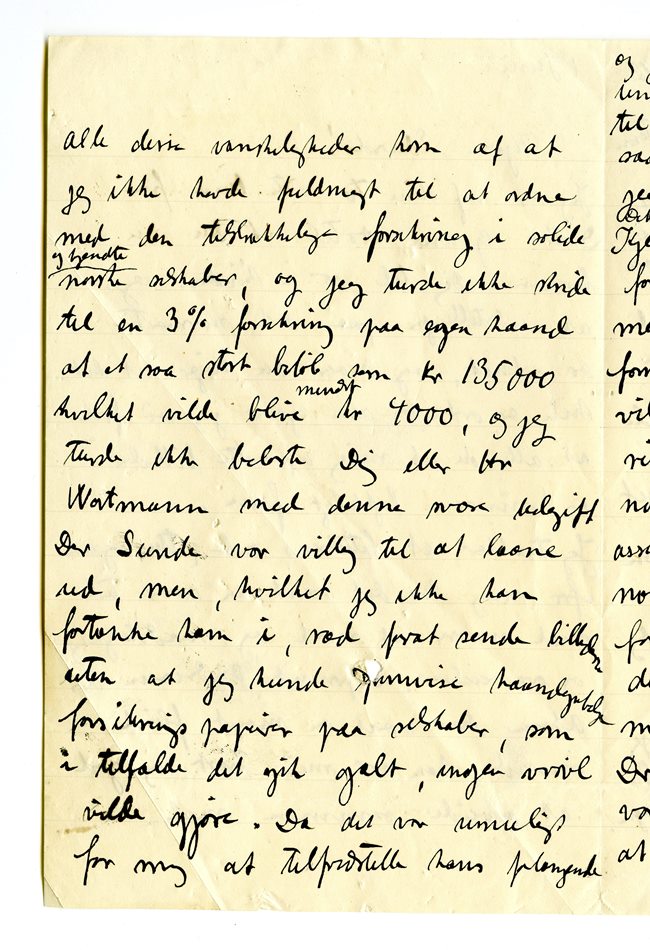 alle disse vanskeligheder kom af at
jeg ikke havde fuldmagt til at ordne
med den tilstrækkelige forsikring i solide
og kjendte
norske selskaber, og jeg turde ikke skride
til en 3% forsikring paa egen haand
af et saa stort beløb som Kr 135000
mindst
hvilket vilde blive kr 4000, og jeg
turde ikke belaste Dig eller Hr
Wartmann med denne svære udgift
Der Sunde var villig til at laane
ud, men, hvilket jeg ikke kan
fortænke ham i, ræd forat sende billederne
uten at jeg kunde paavise haandgribelige
forsikringspapirer paa selskaber, som
i tilfælde det gik galt, ingen vrøvl
vilde gjøre. Da det var umuligt
for mig at tilfredstille hans
og
til
Det
for
vil
assu
for
de
Der
at